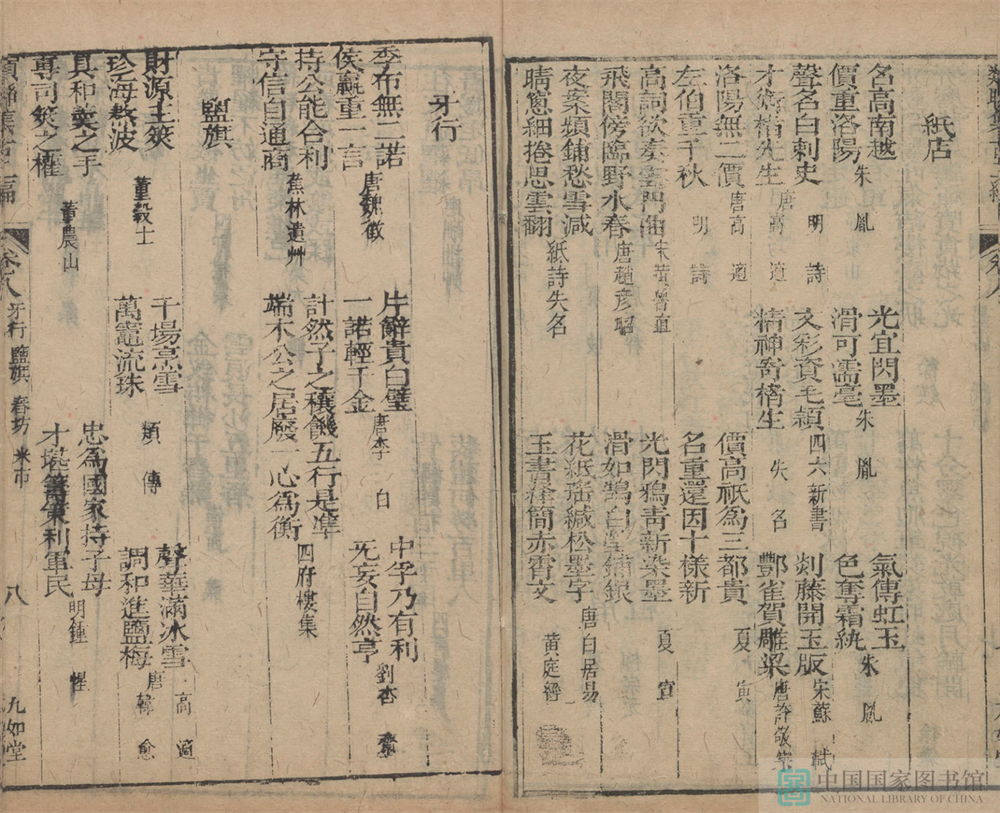 紙店
名高南越
價重洛陽 朱胤
光宜閃墨
滑可濡毫 朱胤
氣傳虹玉
色奪霜紈 朱胤
聲名白刺史 明詩
才術楮先生 唐高適
文彩資毛頴 四六新書
精神奇楮生 失名
剡藤開玉版 宋蘇軾
艷雀賀雕梁 唐許敬宗
洛陽無二價 唐高適
左伯重千秋 明詩
價高祇為三都貴 夏寅
名重還因十樣新
高詞欲 宋黃魯直
光閃鴉青新染墨 夏寅
飛閣傍臨野水春 唐趙彦昭
滑如鵠白 鋪銀
夜案頻鋪愁雪減
花紙瑶緘松墨字 唐白居易
晴窻細捲思雲翻 紙詩失名
玉書絳簡赤霄文 黃庭經
牙行
季布無二諾 唐魏徵
侯嬴重一言
片辭貴白璧
一諾輕千金 唐李白
中孚乃有利
无妄自然亨 劉杏
持公能合利
守信自通商 焦林遺州
計然子之穰饑五行是準
端木公之居廢一心為衡 四府樓集
鹽旗
財源主筴 董穀士
珍海熬波
千場烹雪 類傳
萬竈流珠
聲華滿冰雪 高適
調和進鹽梅 唐韓愈
具和羮之手
專司筴之權 董農山
忠為國家持子母
才堪籌策利軍民 明鍾惺
卷八 牙行 鹽旗 春坊 米市
八
九如堂
中国国家图书馆
NATIONAL LIBRARY OF CHINA